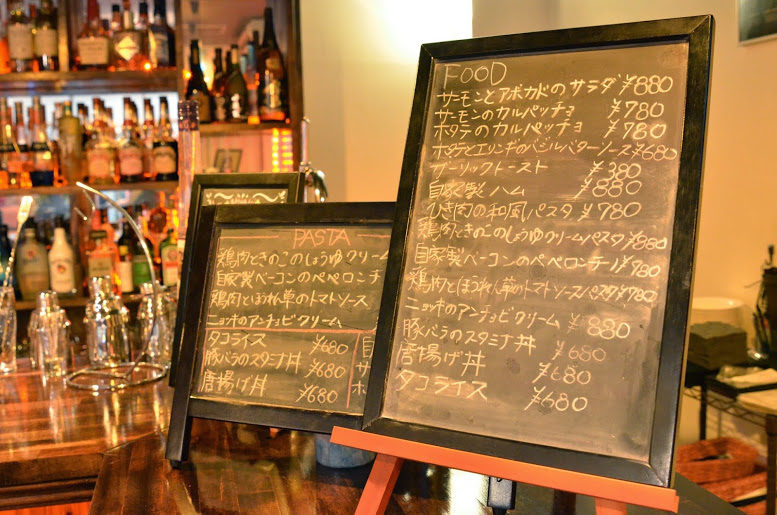 PASTA
鶏肉ときのこのしょうゆクリーム
自家製ベーコンのペペロンチ
鶏肉とほうれん草のトマトソース
ニョッキのアンチョビクリーム
タコライス ¥680
豚バラのスタミナ丼 ¥680
唐揚げ丼 ¥680
自
サ
ホ
FOOD
サーモンとアボカドのサラダ ¥880
サーモンのカルパッチョ ¥780
ホタテのカルパッチョ ¥780
ホタテとエリンギのバジルバターソース ¥680
ガーリックトースト ¥380
自家製ハム ¥880
ひき肉の和風パスタ ¥780
鶏肉ときのこのしょうゆクリームパスタ ¥880
自家製ベーコンのペペロンチーノ ¥780
鶏肉とほうれん草のトマトソースパスタ ¥780
ニョッキのアンチョビクリーム ¥880
豚バラのスタミナ丼 ¥680
唐揚げ丼 ¥680
タコライス ¥680